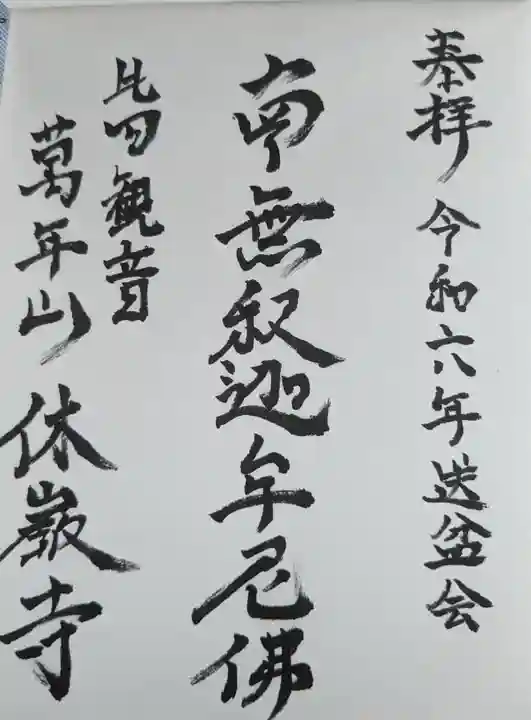 奉拝 令和六年送盆会
南無釈迦牟尼佛
昔田観音
萬年山 休巌寺